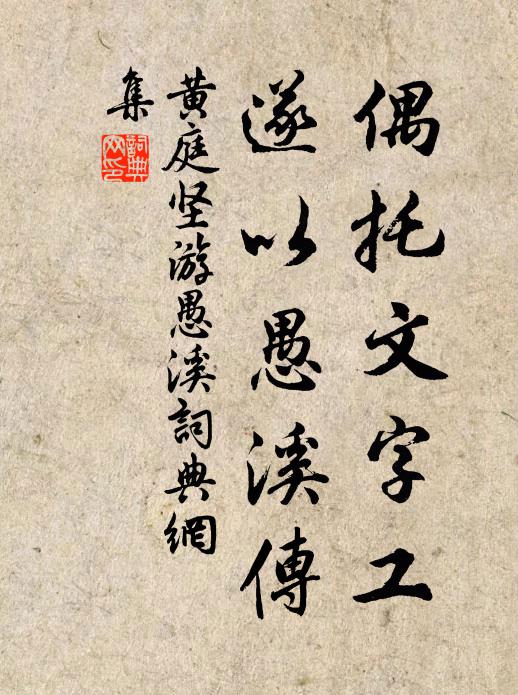 偶托文字工
遂以愚溪傳
黄庭坚游愚溪詞典網
集
詞典
网印